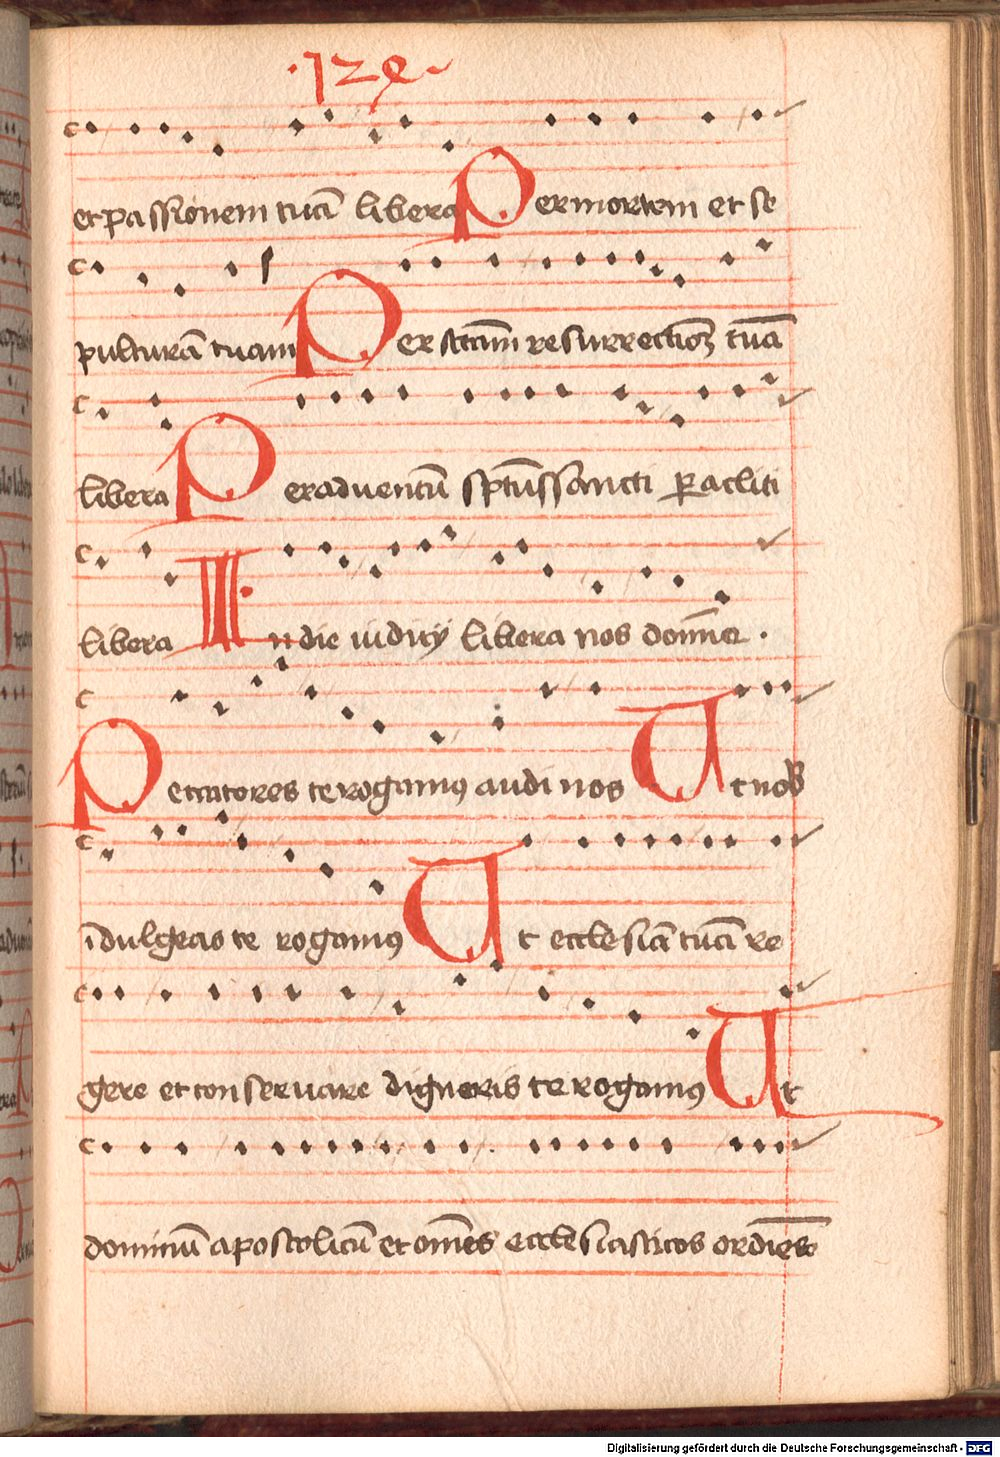 ·129·
et passionem tuā libera Per mortem et se
pulturā tuam Per sctām resurrectionē tuā
libera Per aduentū sp̄tus sancti paracliti
libera In die iudicij libera nos domine .
Peccatores te rogamus audi nos Ut nob
īdulgeas te rogamus Ut ecclesiā tuā re
gere et conseruare digneris te rogamus Ut
dominū apostolicū et om̄es ecclesiasticos ordīes
Digitalisierung gefördert durch die Deutsche Forschungsgemeinschaft - DFG